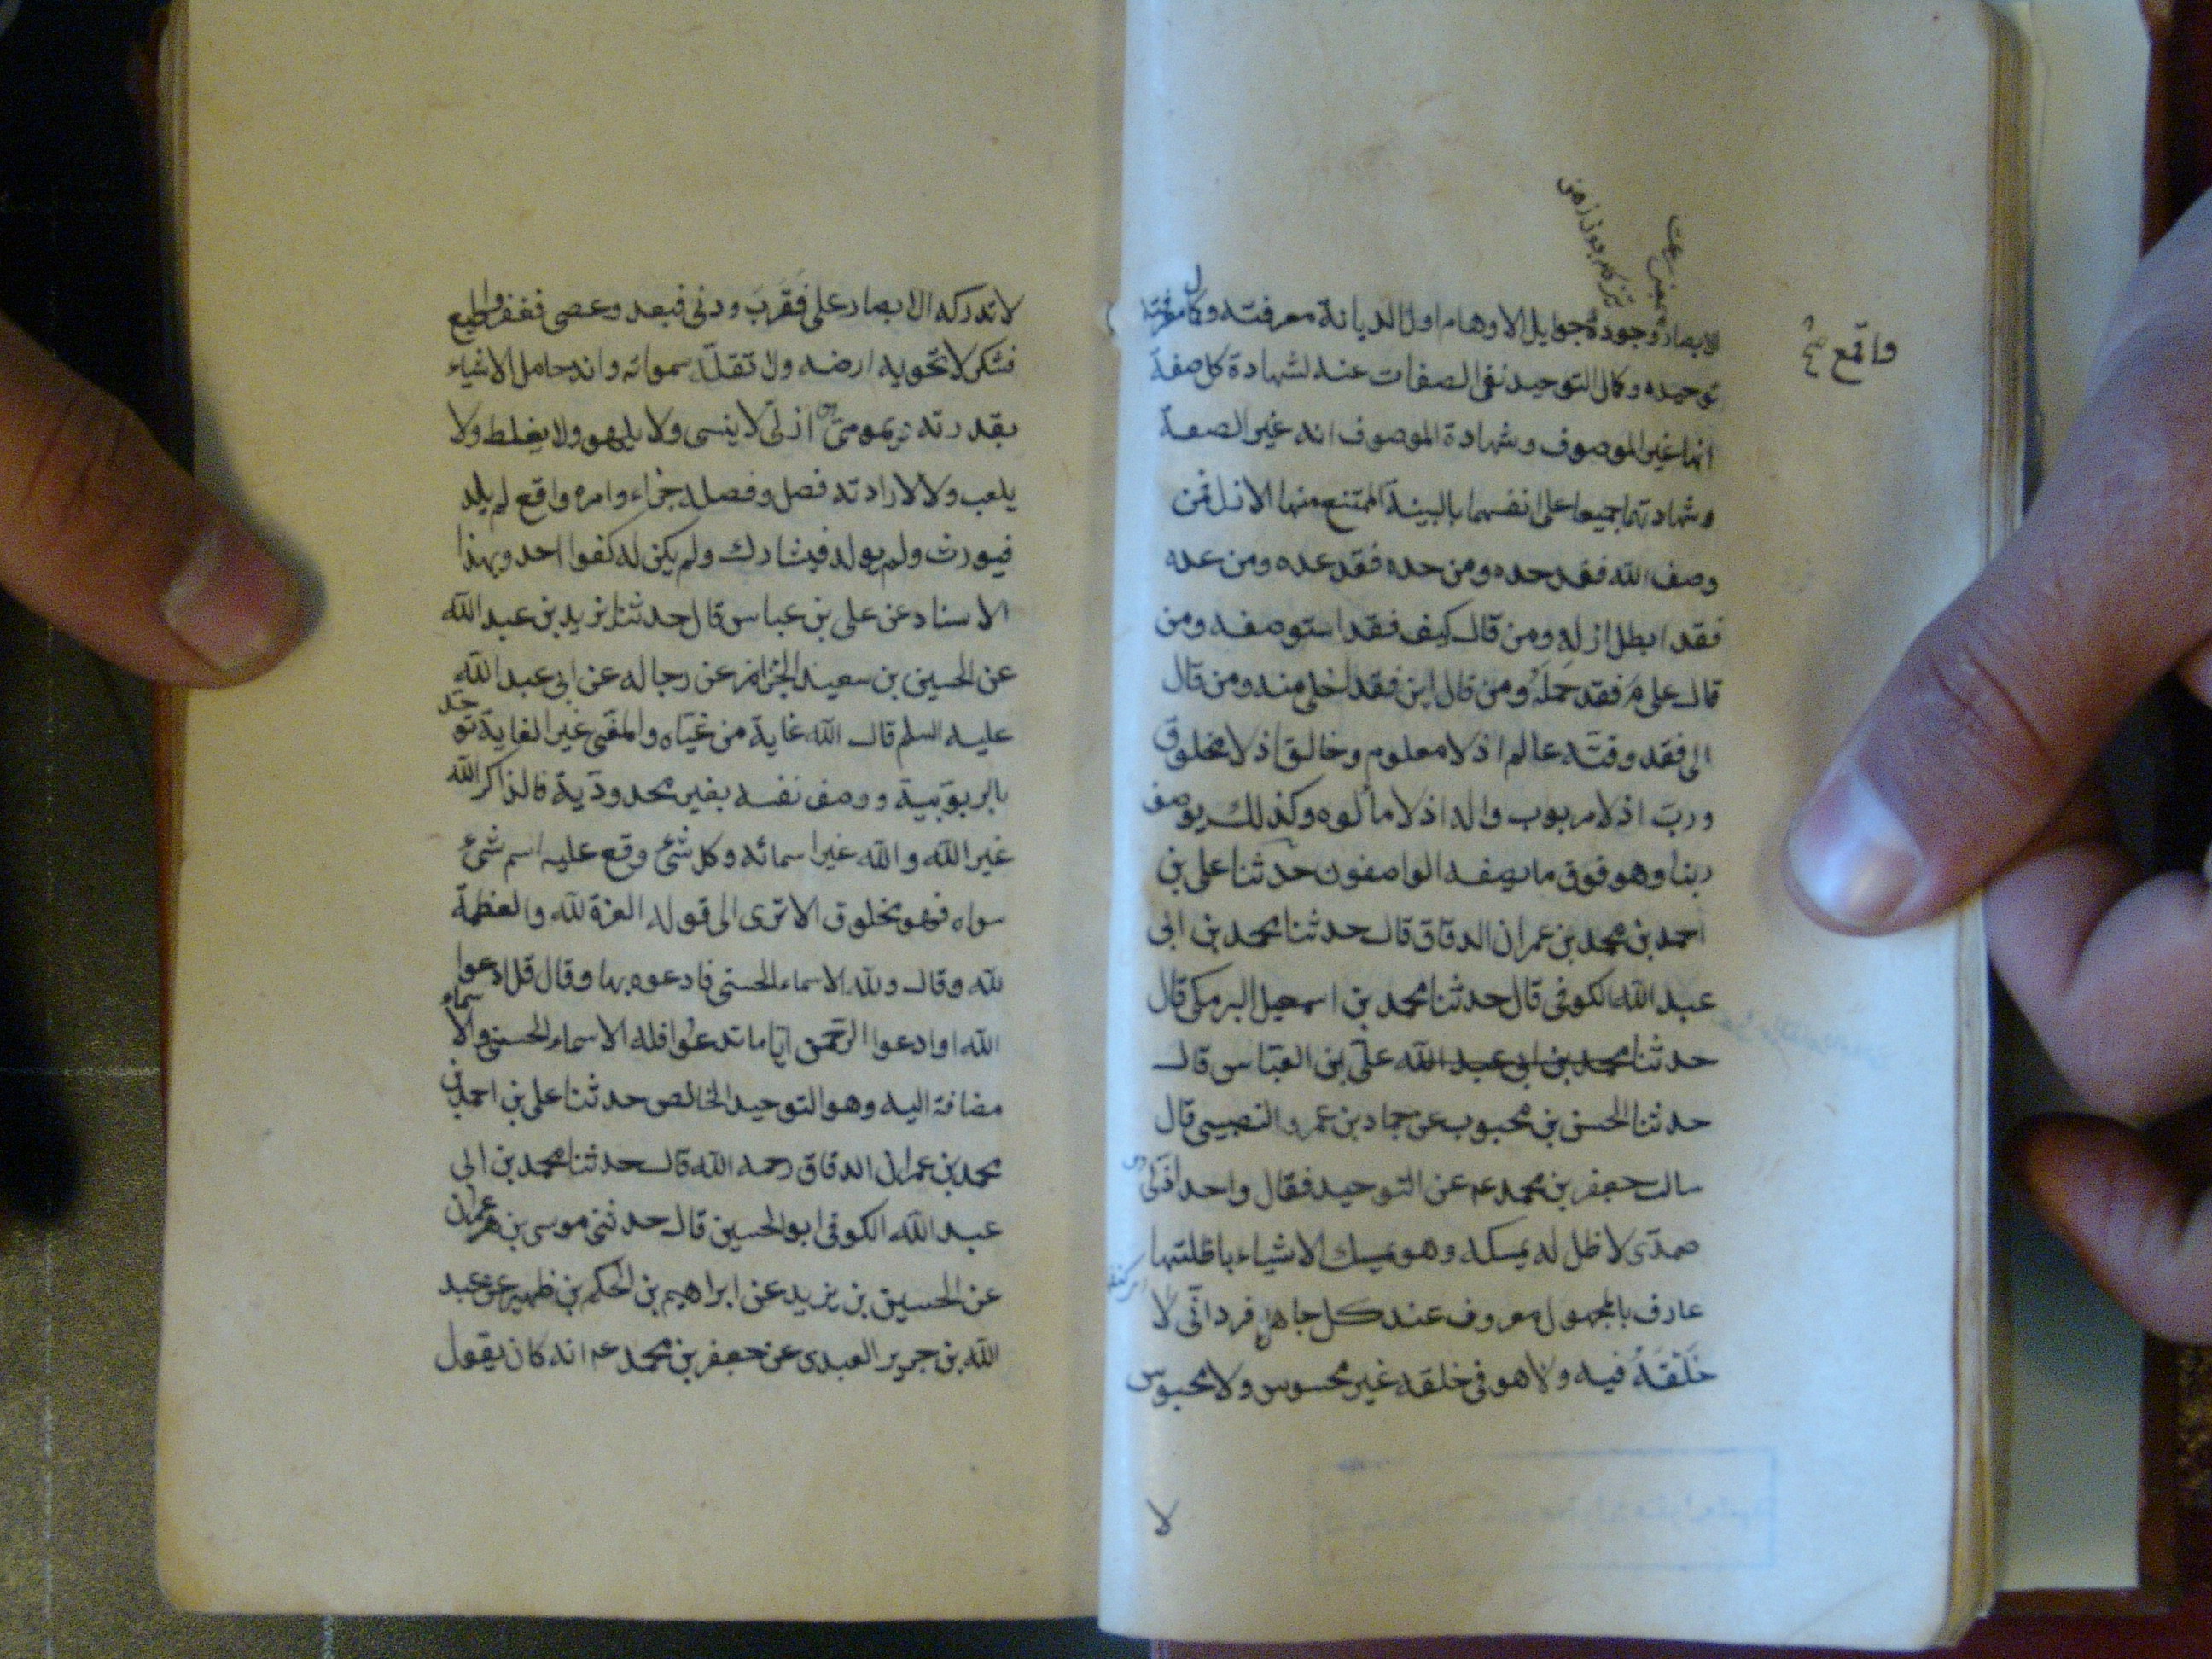 الابصار وجوده جوايل الاوهام اول الديانة معرفته وكمال معرفته
توحيده وكمال التوحيد نفى الصفات عنه لشهادة كل صفة
انها غير الموصوف وشهادة الموصوف انه غير الصفة
وشهادتهما جميعا على انفسهما بالبينة الممتنع منها الازل فمن
وصف الله فقد حده ومن حده فقد عده ومن عده
فقد ابطل ازله ومن قال كيف فقد استوصفه ومن
قال على م فقد حمله ومن قال اين فقد اخلى منه ومن قال
الى فقد وقته عالم اذ لا معلوم وخالق اذ لا مخلوق
ورب اذ لا مربوب واله اذ لا مألوه وكذلك يوصف
ربنا وهو فوق ما يصفه الواصفون حدثنا على بن
احمد بن محمد بن عمران الدقاق قال حدثنا محمد بن ابى
عبد الله الكوفى قال حدثنا محمد بن اسمعيل البرمكى قال
حدثنا محمد بن ابى عبد الله على بن العباس قال
حدثنا الحسن بن محبوب عن حماد بن عمرو النصيبى قال
سالت جعفر بن محمد عم عن التوحيد فقال واحد ازلى
صمدى لا ظل له يمسكه وهو يمسك الاشياء باظلتها
عارف بالمجهول معروف عند كل جاهل فردانى لا
خلقه فيه ولا هو فى خلقه غير محسوس ولا محبوس
لا
واقمع
لا تدركه الابصار على فقرب ودنى فبعد وعصى فغفر واطيع
فشكر لا تحويه ارضه ولا تقله سمواته وانه حامل الاشياء
بقدرته ديمومى ازلى لا ينسى ولا يلهو ولا يغلط ولا
يلعب ولا لارادته فصل وفصله جزاء وامره واقع لم يلد
فيورث ولم يولد فيشارك ولم يكن له كفوا احد وبهذا
الاسناد عن على بن عباس قال حدثنا يزيد بن عبد الله
عن الحسين بن سعيد الخزاز عن رجاله عن ابى عبد الله
عليه السلم قال الله غاية من غياه والمغيى غير الغاية توحد
بالربوبية ووصف نفسه بغير محدودية فالذاكر الله
غير الله والله غير اسمائه وكل شئ وقع عليه اسم شئ
سواه فهو مخلوق الا ترى الى قوله العزة لله والعظمة
لله وقال ولله الاسماء الحسنى فادعوه بها وقال قل ادعوا
الله او ادعوا الرحمن ايا ما تدعوا فله الاسماء الحسنى والاسماء
مضافة اليه وهو التوحيد الخالص حدثنا على بن احمد بن
محمد بن عمران الدقاق رحمه الله قال حدثنا محمد بن ابى
عبد الله الكوفى ابو الحسين قال حدثنى موسى بن عمران
عن الحسين بن يزيد عن ابراهيم بن الحكم بن ظهير عن عبد
الله بن جرير العبدى عن جعفر بن محمد عم انه كان يقول